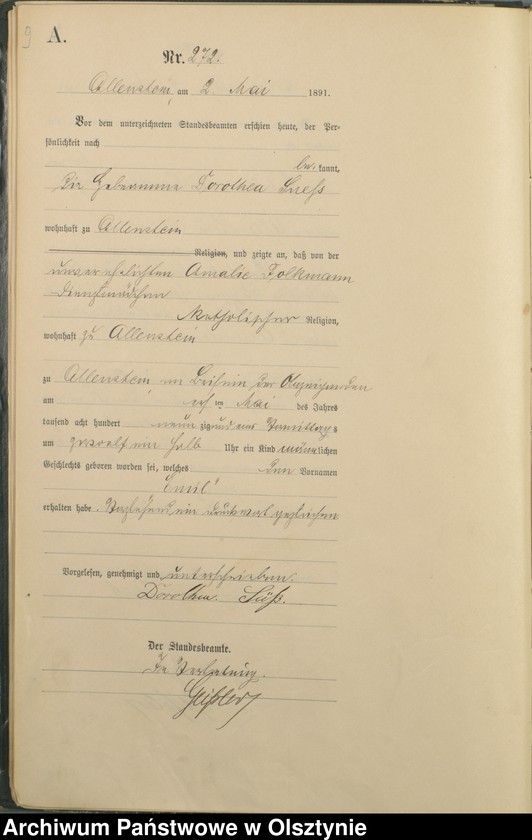 9
A.
Nr. 272.
Allenstein, am 2. Mai 1891.
Vor dem unterzeichneten Standesbeamten erschien heute, der Per-
sönlichkeit nach
be kannt,
die Hebeamme Dorothea Suess
wohnhaft zu Allenstein
Religion, und zeigte an, daß von der
unverehelichten Amalie Folkmann
Dienstmädchen
katholischer Religion,
wohnhaft zu Allenstein
zu Allenstein, im Beisein der Anzeigenden
am ersten Mai des Jahres
tausend acht hundert neunzig und eins Vormittags
um zwoelf ein halb Uhr ein Kind männlichen
Geschlechts geboren worden sei, welches den Vornamen
Emil
erhalten habe. Vorstehend ein Druckwort gestrichen
Vorgelesen, genehmigt und unterschrieben.
Dorothea Süß.
Der Standesbeamte.
In Vertretung.
Archiwum Państwowe w Olsztynie